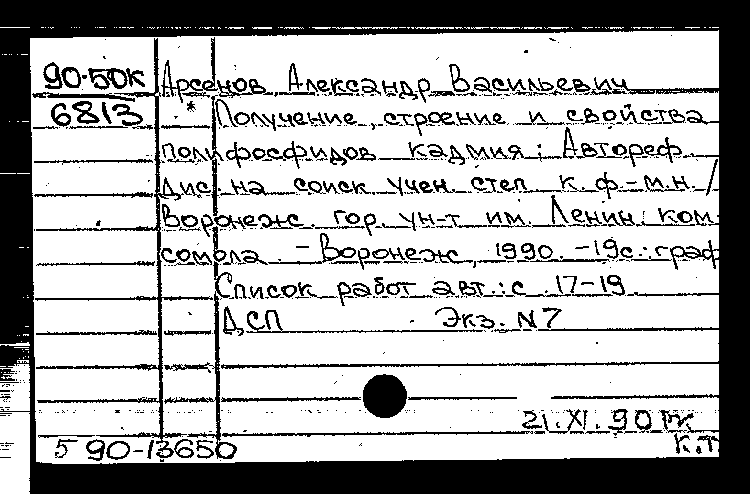 90-50К Арсенов Александр Васильевич
6813 * Получение, строение и свойства
полифосфидов кадмия: Автореф.
дис. на соиск. учен. степ. к. ф.-м.н. /
Воронеж. гор. ун-т им. Ленин. ком-
сомола. – Воронеж, 1990. – 19с.: граф
Список работ авт.: с. 17-19
ДСП Экз. N7
21.XI.90
К.Т.
5 90-13650